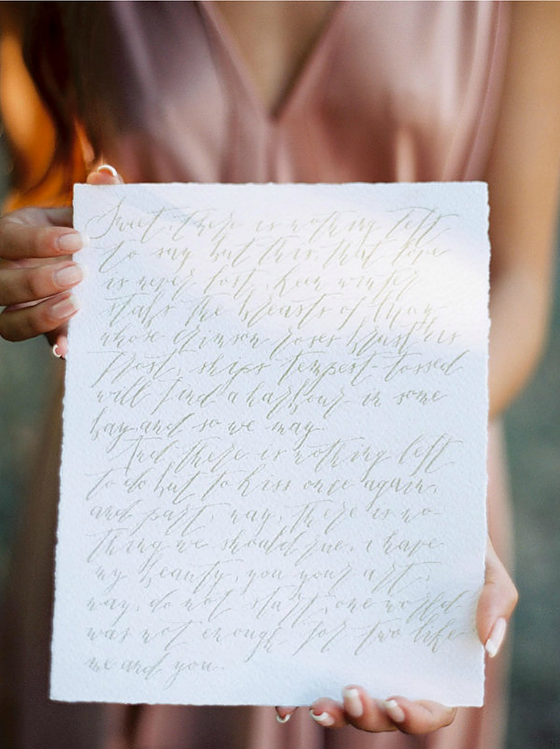 Sweet, there is nothing left
to say but this, that love
is never lost, keen winter
stabs the breasts of May
whose crimson roses burst his
frost, ships tempest-tossed
will find a harbour in some
bay, and so we may.
And there is nothing left
to do but to kiss once again,
and part, nay, there is no-
thing we should rue, i have
my beauty, you your art,
nay, do not start, one world
was not enough for two like
me and you.